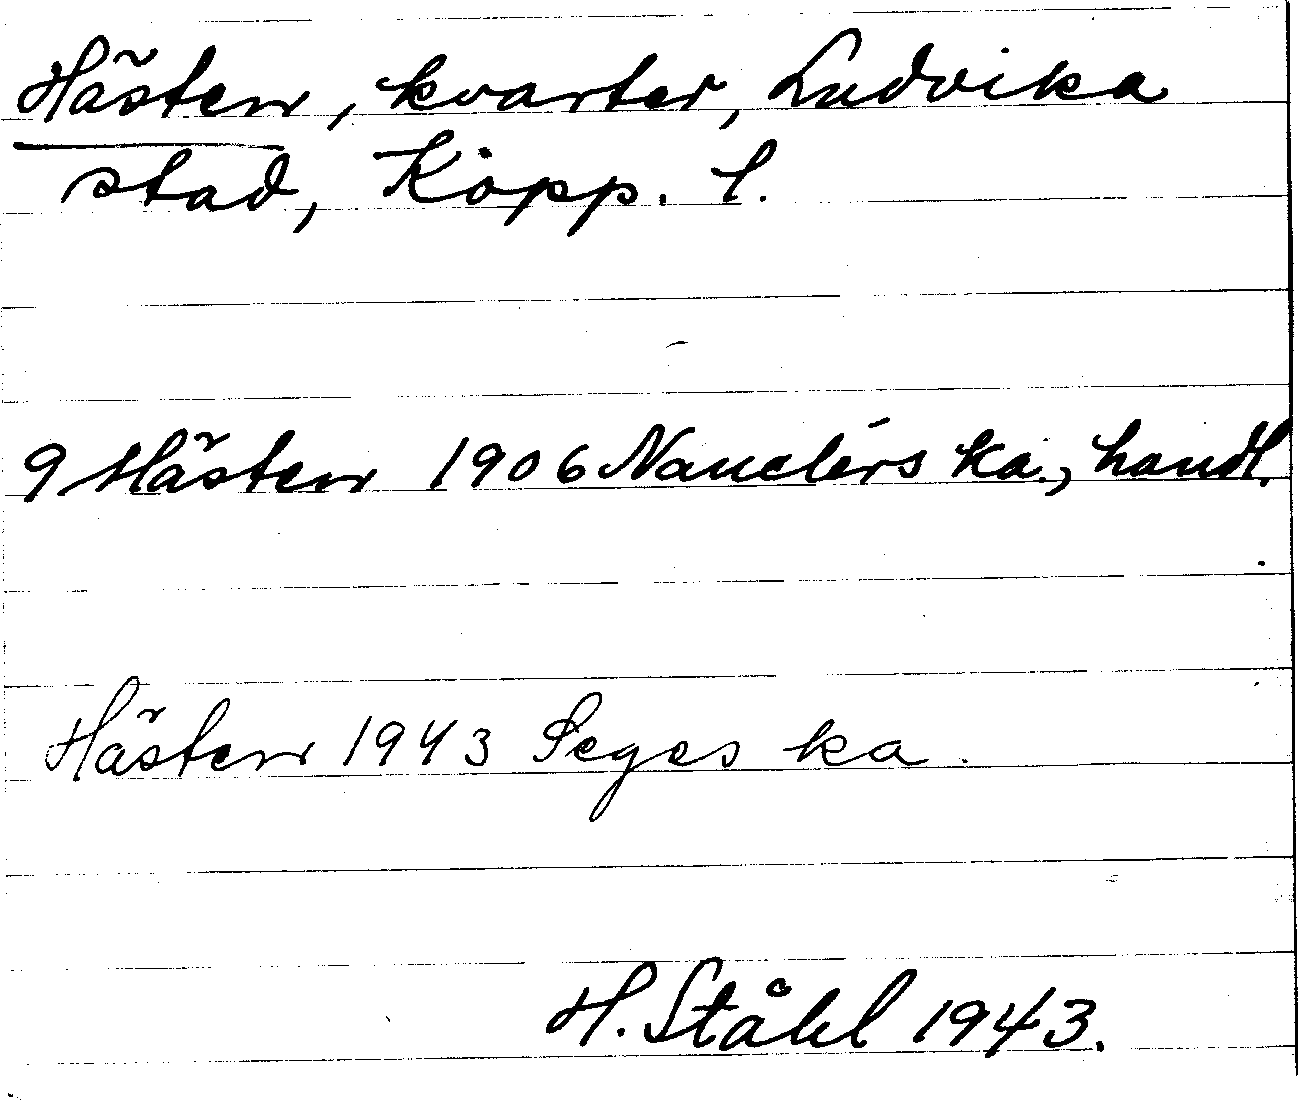 Hästen, kvarter, Ludvika
stad, Kopp. l.
9 Hästen 1906 Nauclérs ka., handl.
Hästen 1943 Seges ka.
H. Ståhl 1943.